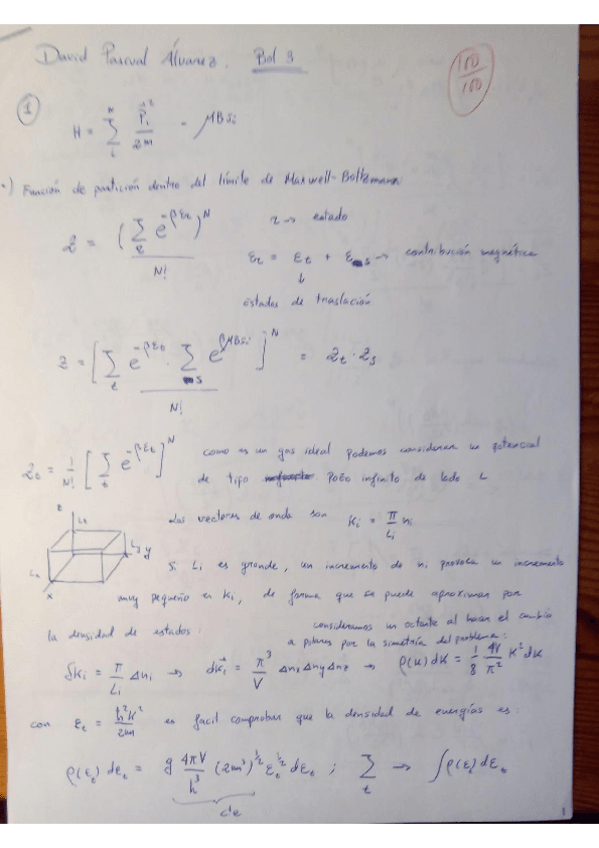 David Pascual Álvarez. Bol 3
100/100
1
H = Σ_i^N P_i²/2m - μBSi
a) Función de partición dentro del límite de Maxwell-Boltzmann:
Z = (Σ_r e^{-βε_r})^N / N!
r → estado
ε_r = ε_t + ε_s → contribución magnética
↓
estados de traslación
Z = [Σ_t e^{-βε_t} · Σ_s e^{βμBSi}]^N / N! = Z_t · Z_s
Z_t = 1/N! [Σ_t e^{-βε_t}]^N como es un gas ideal podemos considerar un potencial
de tipo pozo infinito de lado L
Los vectores de onda son K_i = π/L_i n_i
z
y
x
Si L_i es grande, un incremento de n_i provoca un incremento
muy pequeño en K_i, de forma que se puede aproximar por
la densidad de estados:
consideramos un octante al hacer el cambio
a polares por la simetría del problema:
δK_i = π/L_i Δn_i → dK_i = π³/V Δn_x Δn_y Δn_z → ρ(K)dK = 1/8 4V/π² K² dK
con ε_t = ħ²K²/2m es facil comprobar que la densidad de energías es:
ρ(ε_t) dε_t = g 4πV/h³ (2m³)^{1/2} ε_t^{1/2} dε_t ; Σ_t → ∫ρ(ε_t)dε_t
cte
1